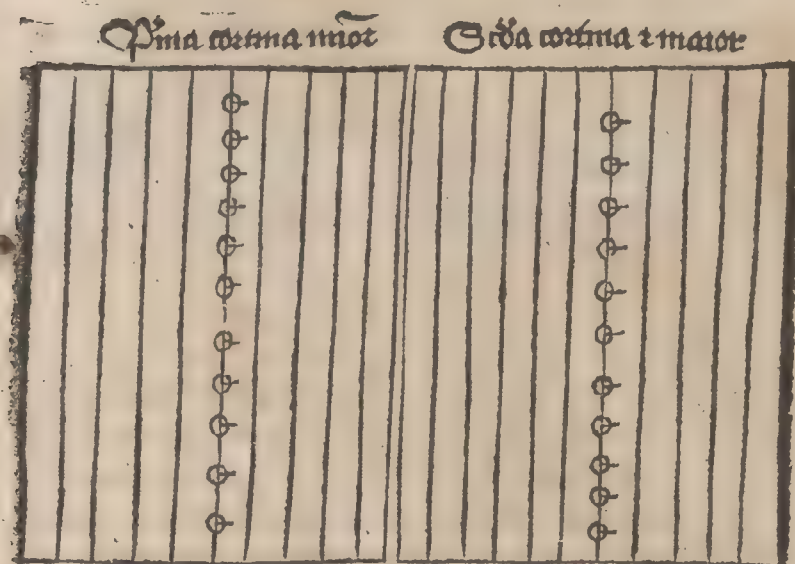 P̄ma cortina mīor
Scďa cortina ⁊ maior